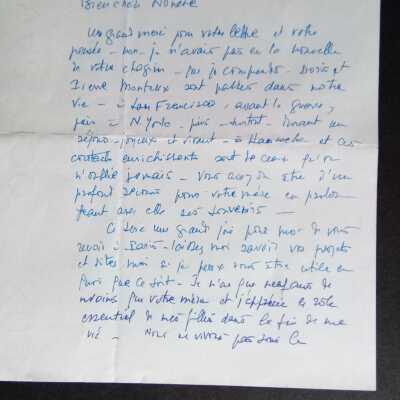 Bien cher
Un grand merci pour votre lettre et votre
pensée - non je n'avais pas eu la nouvelle
de votre chagrin - que je comprends - Doris et
Pierre Monteux sont passés dans notre
vie - à San Francisco, avant la guerre,
puis à N. York - puis - surtout - durant un
séjour - joyeux et vivant - à Hancock et ces
contacts enrichissants sont de ceux qu'on
n'oublie jamais - vous avez dû être d'un
profond secours pour votre mère en
avec elle ses souvenirs -
Ce sera une grande joie pour moi de vous
revoir à Paris - laissez moi savoir vos projets
et dites moi si je peux vous être utile en
quoi que ce soit - Je n'ai que
moins que votre mère et j'apprécie le rôle
essentiel de mes filles dans la fin de ma
vie - Nous ne vivons pas sous le